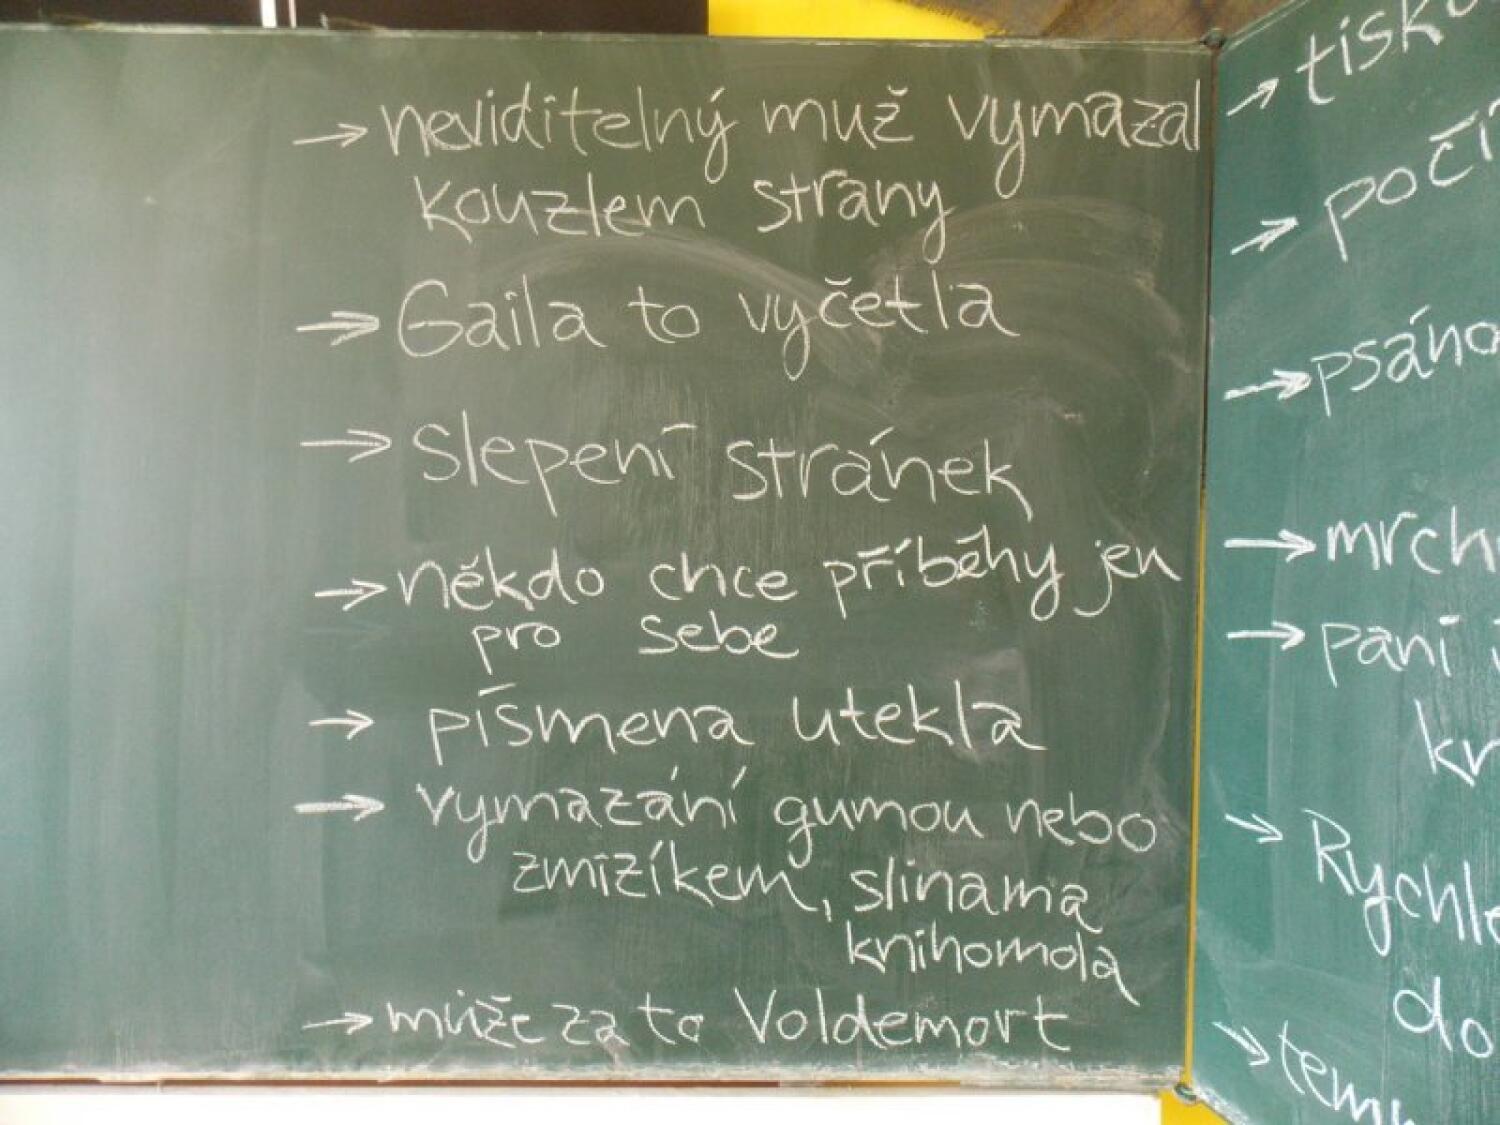 → neviditelný muž vymazal
kouzlem strany
→ Gaila to vyčetla
→ slepení stránek
→ někdo chce příběhy jen
pro sebe
→ písmena utekla
→ vymazání gumou nebo
zmizíkem, slinama
knihomola
→ může za to Voldemort
→ tisk
→ počí
→ psáno
→ mrch
→ paní
kn
→ Rychle
do
→ tem